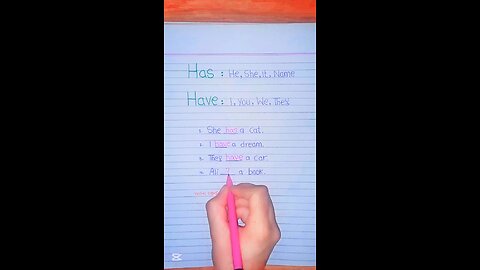 Has : He, She, it, Name
Have : I, You, We, They
1. She has a cat.
2. I have a dream.
3. They have a car.
4. Ali ? a book.